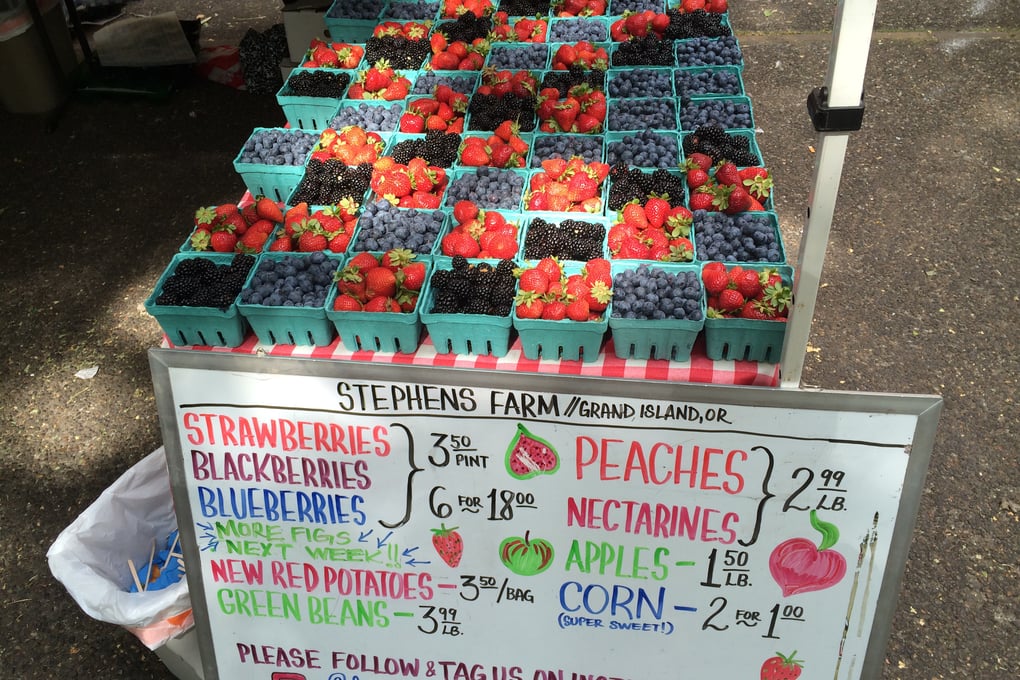 STEPHENS FARM // GRAND ISLAND, OR
STRAWBERRIES
BLACKBERRIES
BLUEBERRIES
3 50 PINT
6 FOR 18 00
MORE FIGS
NEXT WEEK!!
NEW RED POTATOES - 3 50/BAG
GREEN BEANS - 3 99 LB.
PEACHES
NECTARINES
2 99 LB.
APPLES - 1 50 LB.
CORN - 2 FOR 1 00
(SUPER SWEET!)
PLEASE FOLLOW & TAG US ON